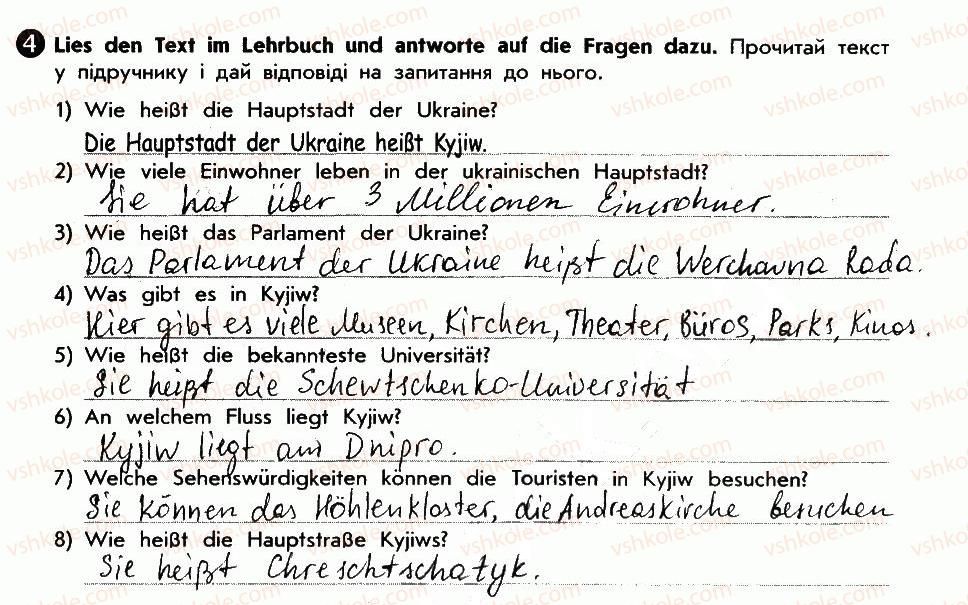 4 Lies den Text im Lehrbuch und antworte auf die Fragen dazu. Прочитай текст
у підручнику і дай відповіді на запитання до нього.
1) Wie heißt die Hauptstadt der Ukraine?
Die Hauptstadt der Ukraine heißt Kyjiw.
2) Wie viele Einwohner leben in der ukrainischen Hauptstadt?
Sie hat über 3 Millionen Einwohner.
3) Wie heißt das Parlament der Ukraine?
Das Parlament der Ukraine heißt die Werchowna Rada.
4) Was gibt es in Kyjiw?
Hier gibt es viele Museen, Kirchen, Theater, Büros, Parks, Kinos.
5) Wie heißt die bekannteste Universität?
Sie heißt die Schewtschenko-Universität
6) An welchem Fluss liegt Kyjiw?
Kyjiw liegt am Dnipro.
7) Welche Sehenswürdigkeiten können die Touristen in Kyjiw besuchen?
Sie können das Höhlenkloster, die Andreaskirche besuchen
8) Wie heißt die Hauptstraße Kyjiws?
Sie heißt Chreschtschatyk.
vshkole.com